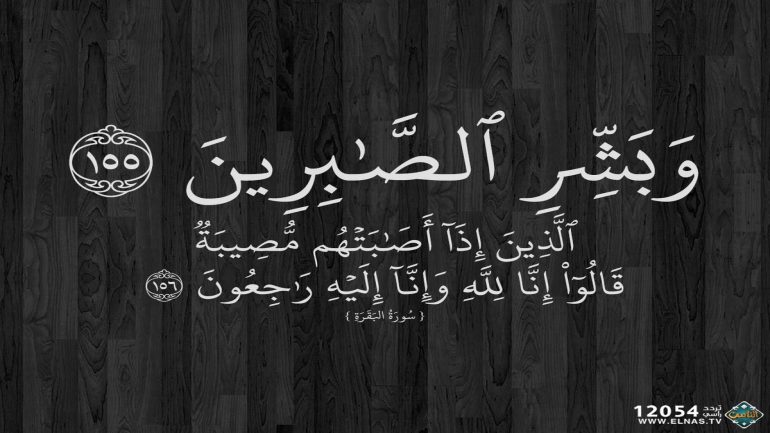 وَبَشِّرِ ٱلصَّـٰبِرِينَ ١٥٥
ٱلَّذِينَ إِذَآ أَصَـٰبَتْهُم مُّصِيبَةٌ
قَالُوٓا۟ إِنَّا لِلَّهِ وَإِنَّآ إِلَيْهِ رَٰجِعُونَ ١٥٦
{ سُورَةُ البَقَرَةِ }
12054 تردد رأسي
WWW.ELNAS.TV
الناس